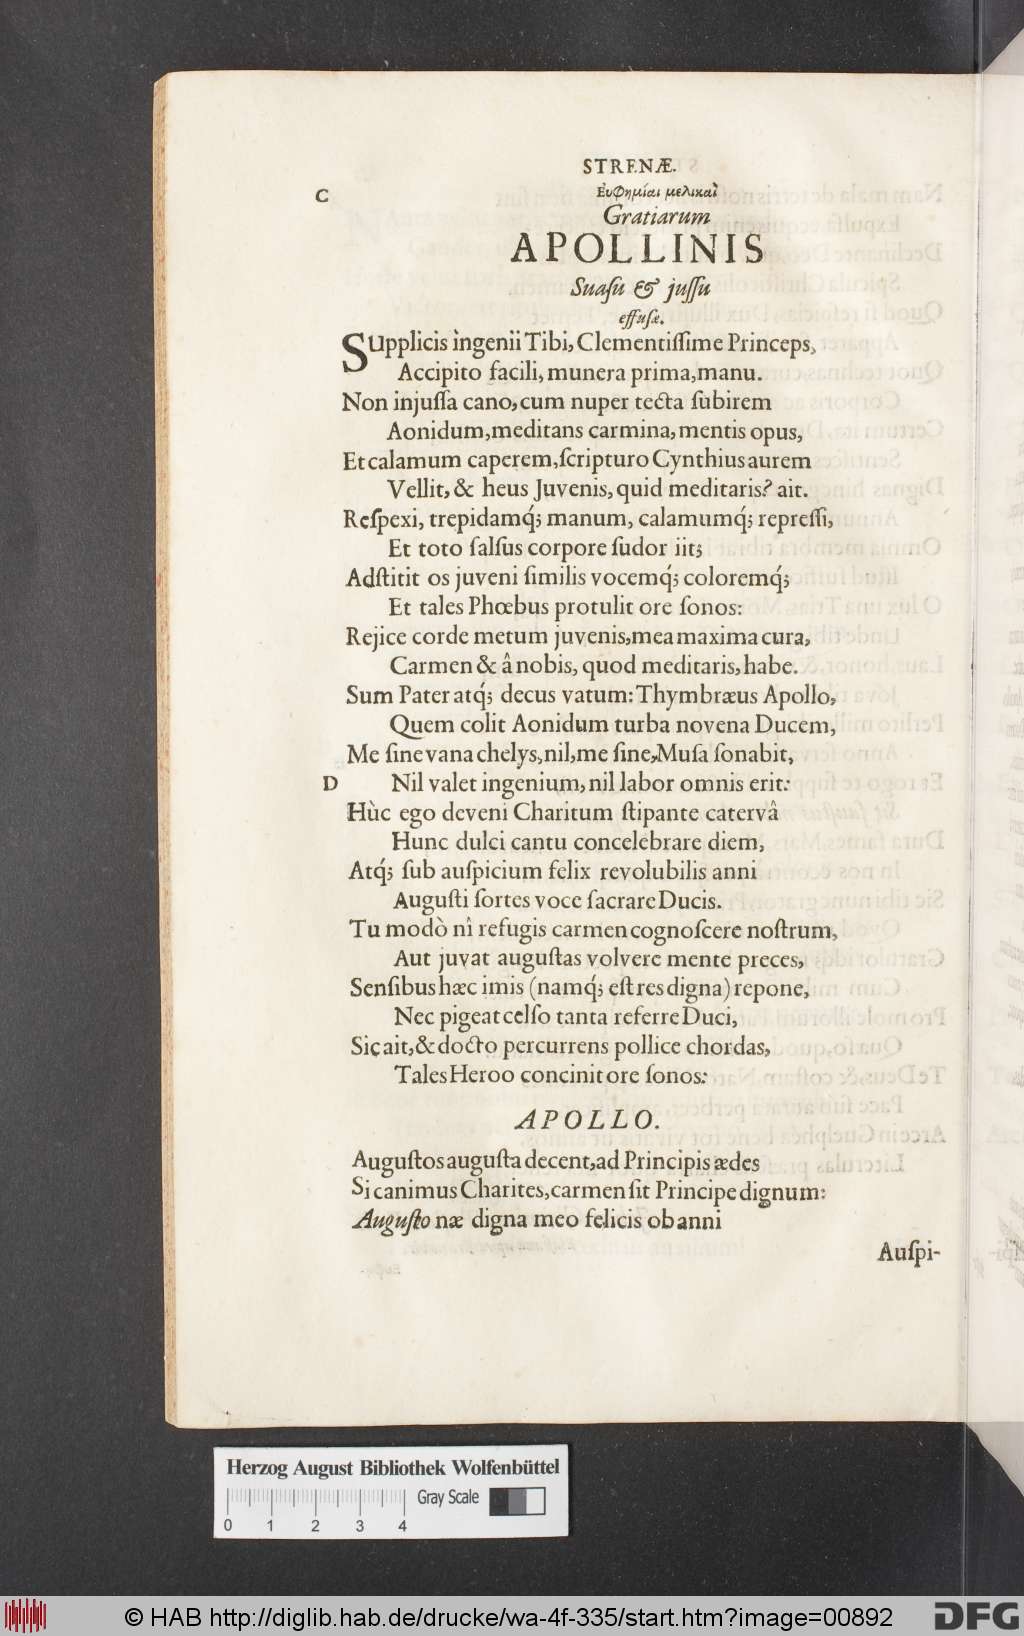 STRENÆ.
C
Ἐυφημίαι μελικαὶ
Gratiarum
APOLLINIS
Suaſu & juſſu
effuſæ.
SUpplicis ìngenii Tibi, Clementiſſime Princeps,
Accipito facili, munera prima, manu.
Non injuſſa cano, cum nuper tecta ſubirem
Aonidum, meditans carmina, mentis opus,
Et calamum caperem, ſcripturo Cynthius aurem
Vellit, & heus Juvenis, quid meditaris? ait.
Reſpexi, trepidamq́; manum, calamumq́; repreſſi,
Et toto ſalſus corpore ſudor iit;
Adſtitit os juveni ſimilis vocemq́; coloremq́;
Et tales Phœbus protulit ore ſonos:
Rejice corde metum juvenis, mea maxima cura,
Carmen & â nobis, quod meditaris, habe.
Sum Pater atq́; decus vatum: Thymbræus Apollo,
Quem colit Aonidum turba novena Ducem,
Me ſine vana chelys, nil, me ſine, Muſa ſonabit,
D
Nil valet ingenium, nil labor omnis erit:
Hùc ego deveni Charitum ſtipante catervâ
Hunc dulci cantu concelebrare diem,
Atq́; ſub auſpicium felix revolubilis anni
Auguſti ſortes voce ſacrare Ducis.
Tu modò nî refugis carmen cognoſcere noſtrum,
Aut juvat auguſtas volvere mente preces,
Senſibus hæc imis (namq́; eſt res digna) repone,
Nec pigeat celſo tanta referre Duci,
Sic ait, & docto percurrens pollice chordas,
Tales Heroo concinit ore ſonos:
APOLLO.
Auguſtos auguſta decent, ad Principis ædes
Si canimus Charites, carmen ſit Principe dignum:
Auguſto næ digna meo felicis ob anni
Auſpi-
Herzog August Bibliothek Wolfenbüttel
Gray Scale
0 1 2 3 4
© HAB http://diglib.hab.de/drucke/wa-4f-335/start.htm?image=00892
DFG